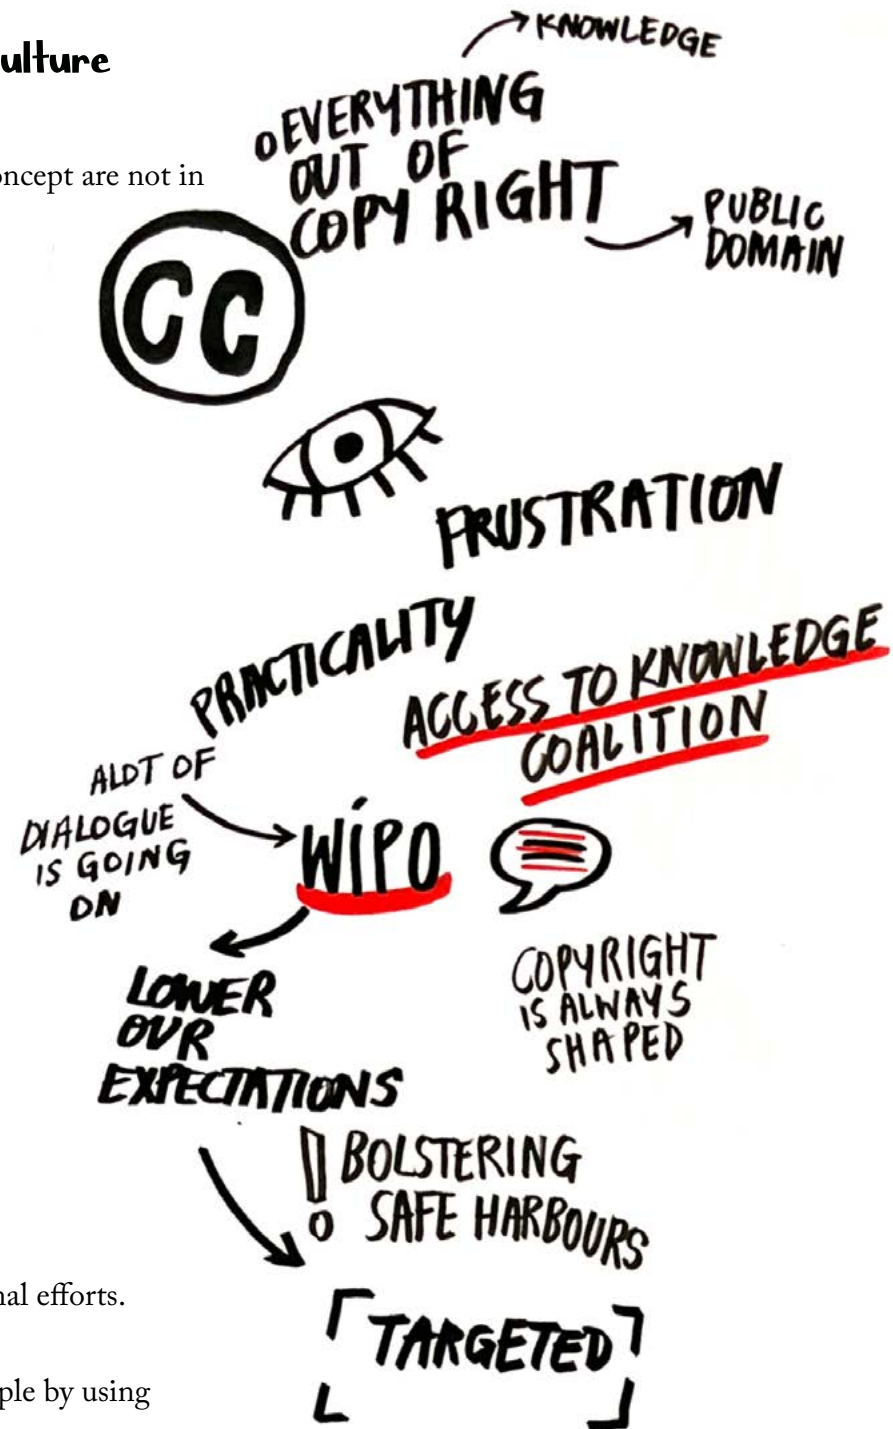 ulture
KNOWLEDGE
EVERYTHING
OUT OF
COPY RIGHT
oncept are not in
PUBLIC
DOMAIN
CC
FRUSTRATION
PRACTICALITY
ACCESS TO KNOWLEDGE
COALITION
ALOT OF
DIALOGUE
IS GOING
ON
WIPO
COPYRIGHT
IS ALWAYS
SHAPED
LOWER
OUR
EXPECTATIONS
! BOLSTERING
SAFE HARBOURS
nal efforts.
TARGETED
ple by using